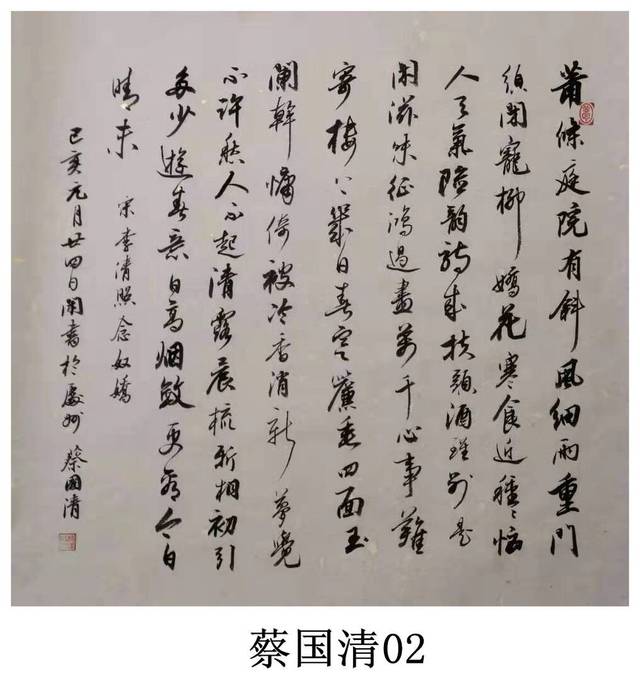 蕭條庭院有斜風細雨重門
須閉寵柳嬌花寒食近種種惱
人天氣險韻詩成扶頭酒醒別是
閑滋味征鴻過盡萬千心事難
寄樓上幾日春寒簾垂四面玉
闌幹慵倚被冷香消新夢覺
不許愁人不起清露晨流新桐初引
多少遊春意日高烟斂更看今日
晴未
宋李清照念奴嬌
己亥元月廿四日閑書於處州 蔡國清
蔡国清02